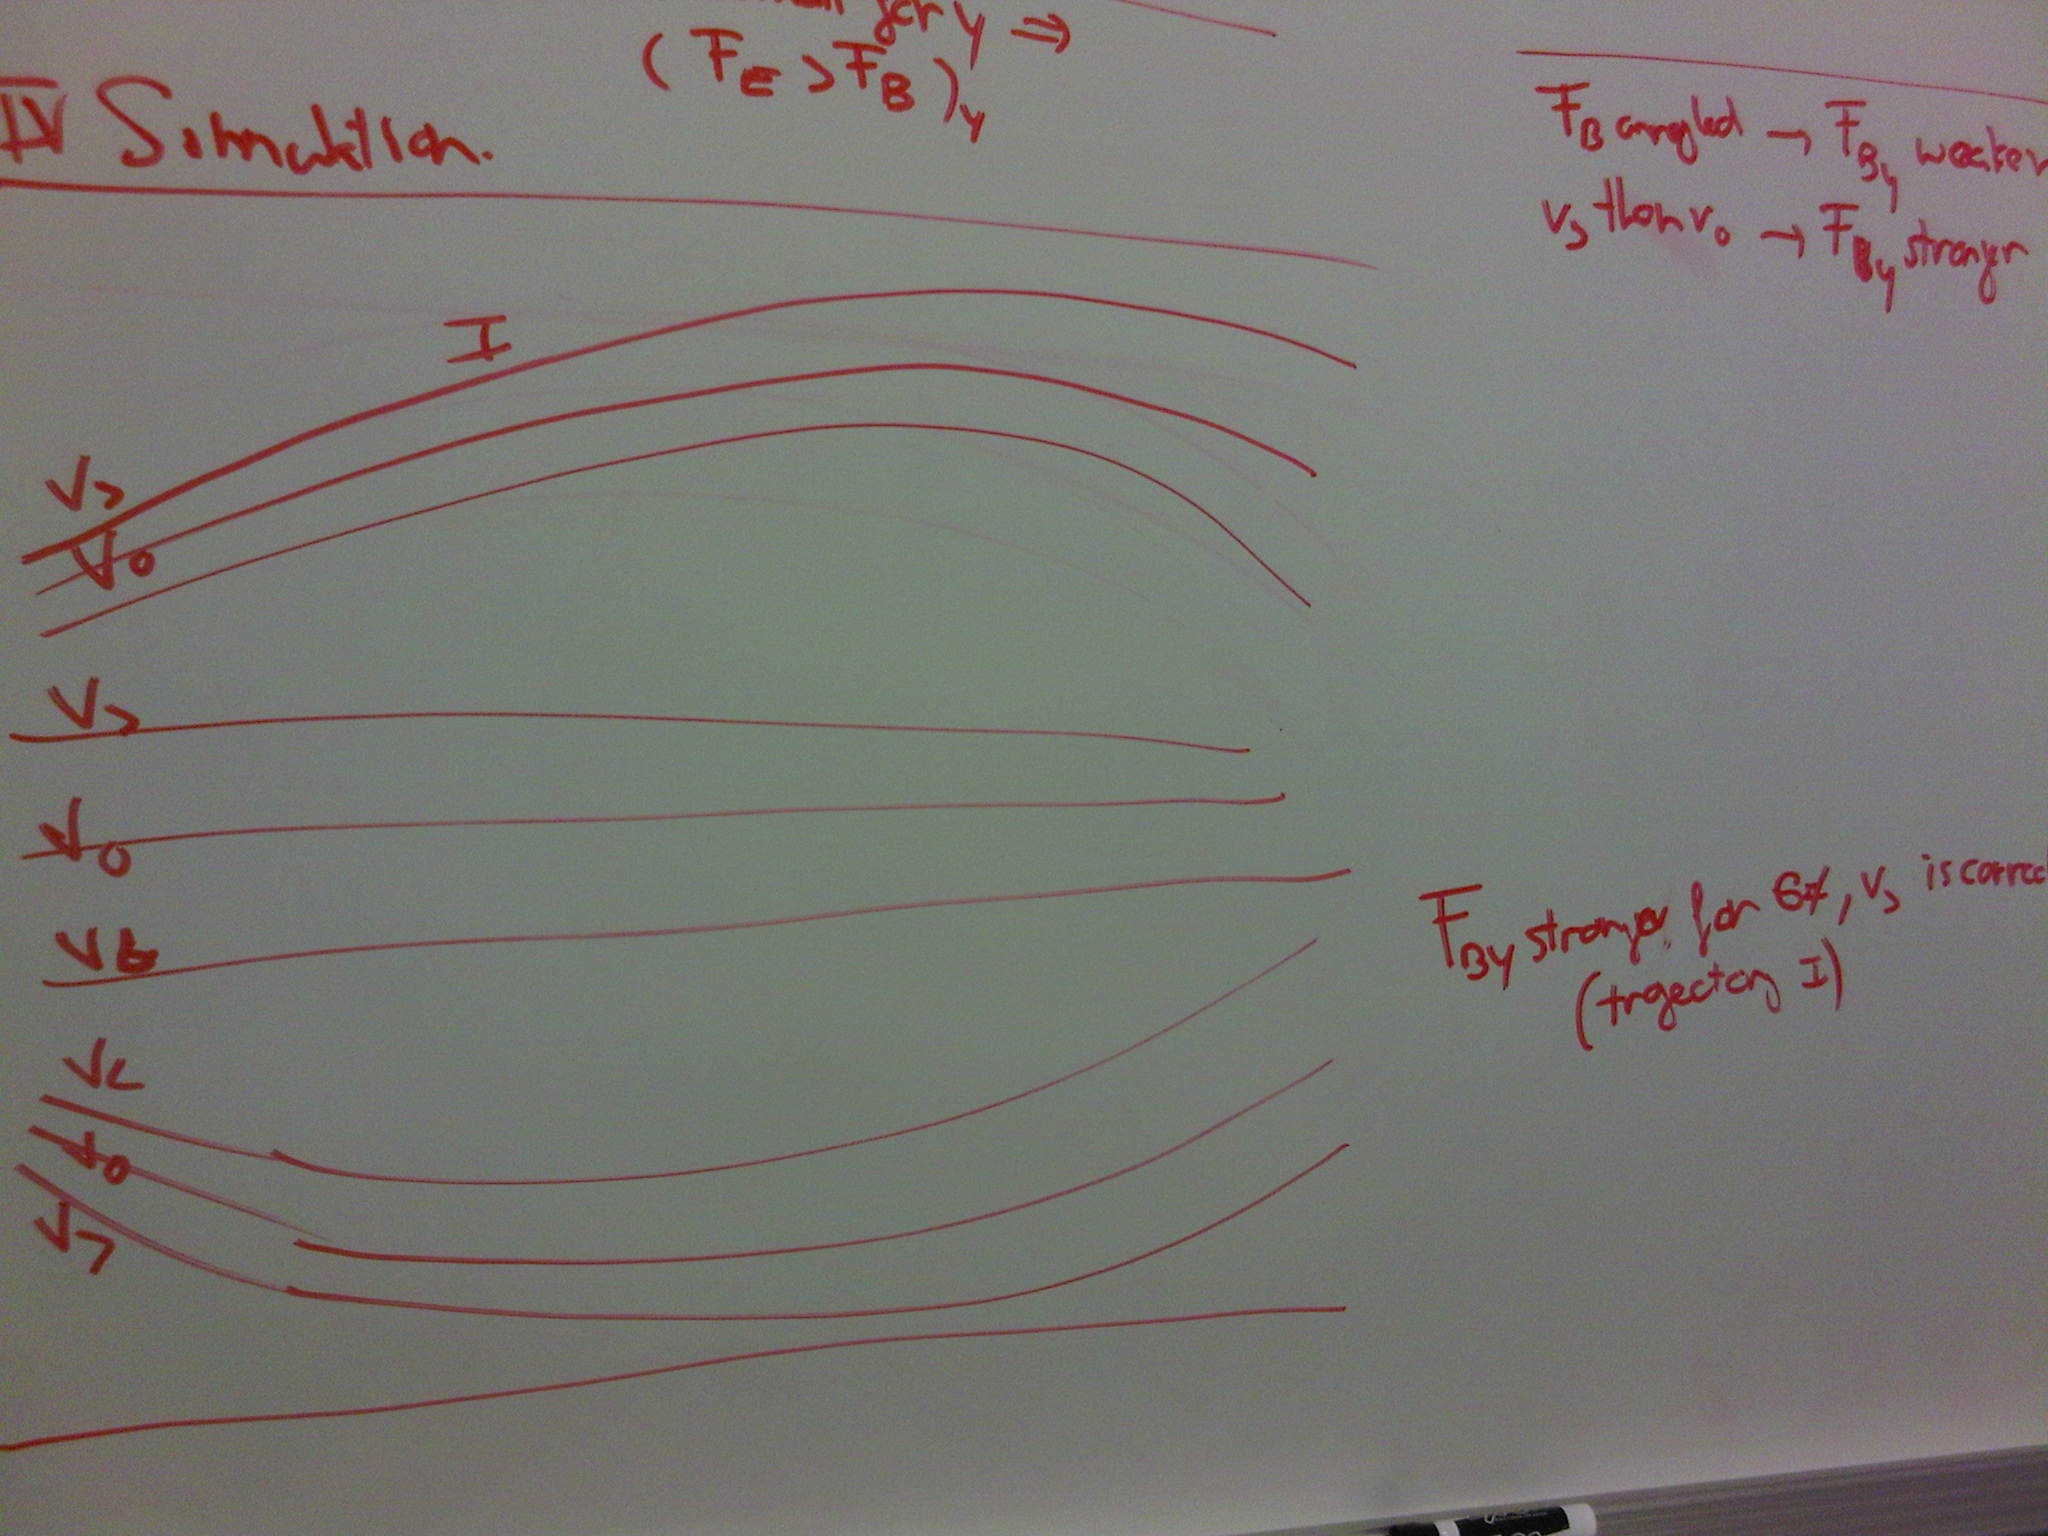 for y ⇒
(F_E > F_B)_y
IV Simulation.
F_B angled → F_By weaker
v_> than v_0 → F_By stronger
I
V_>
V_0
V_>
V_0
V_<
V_<
V_0
V_>
F_By stronger for, v_> is correc
(trajectory I)